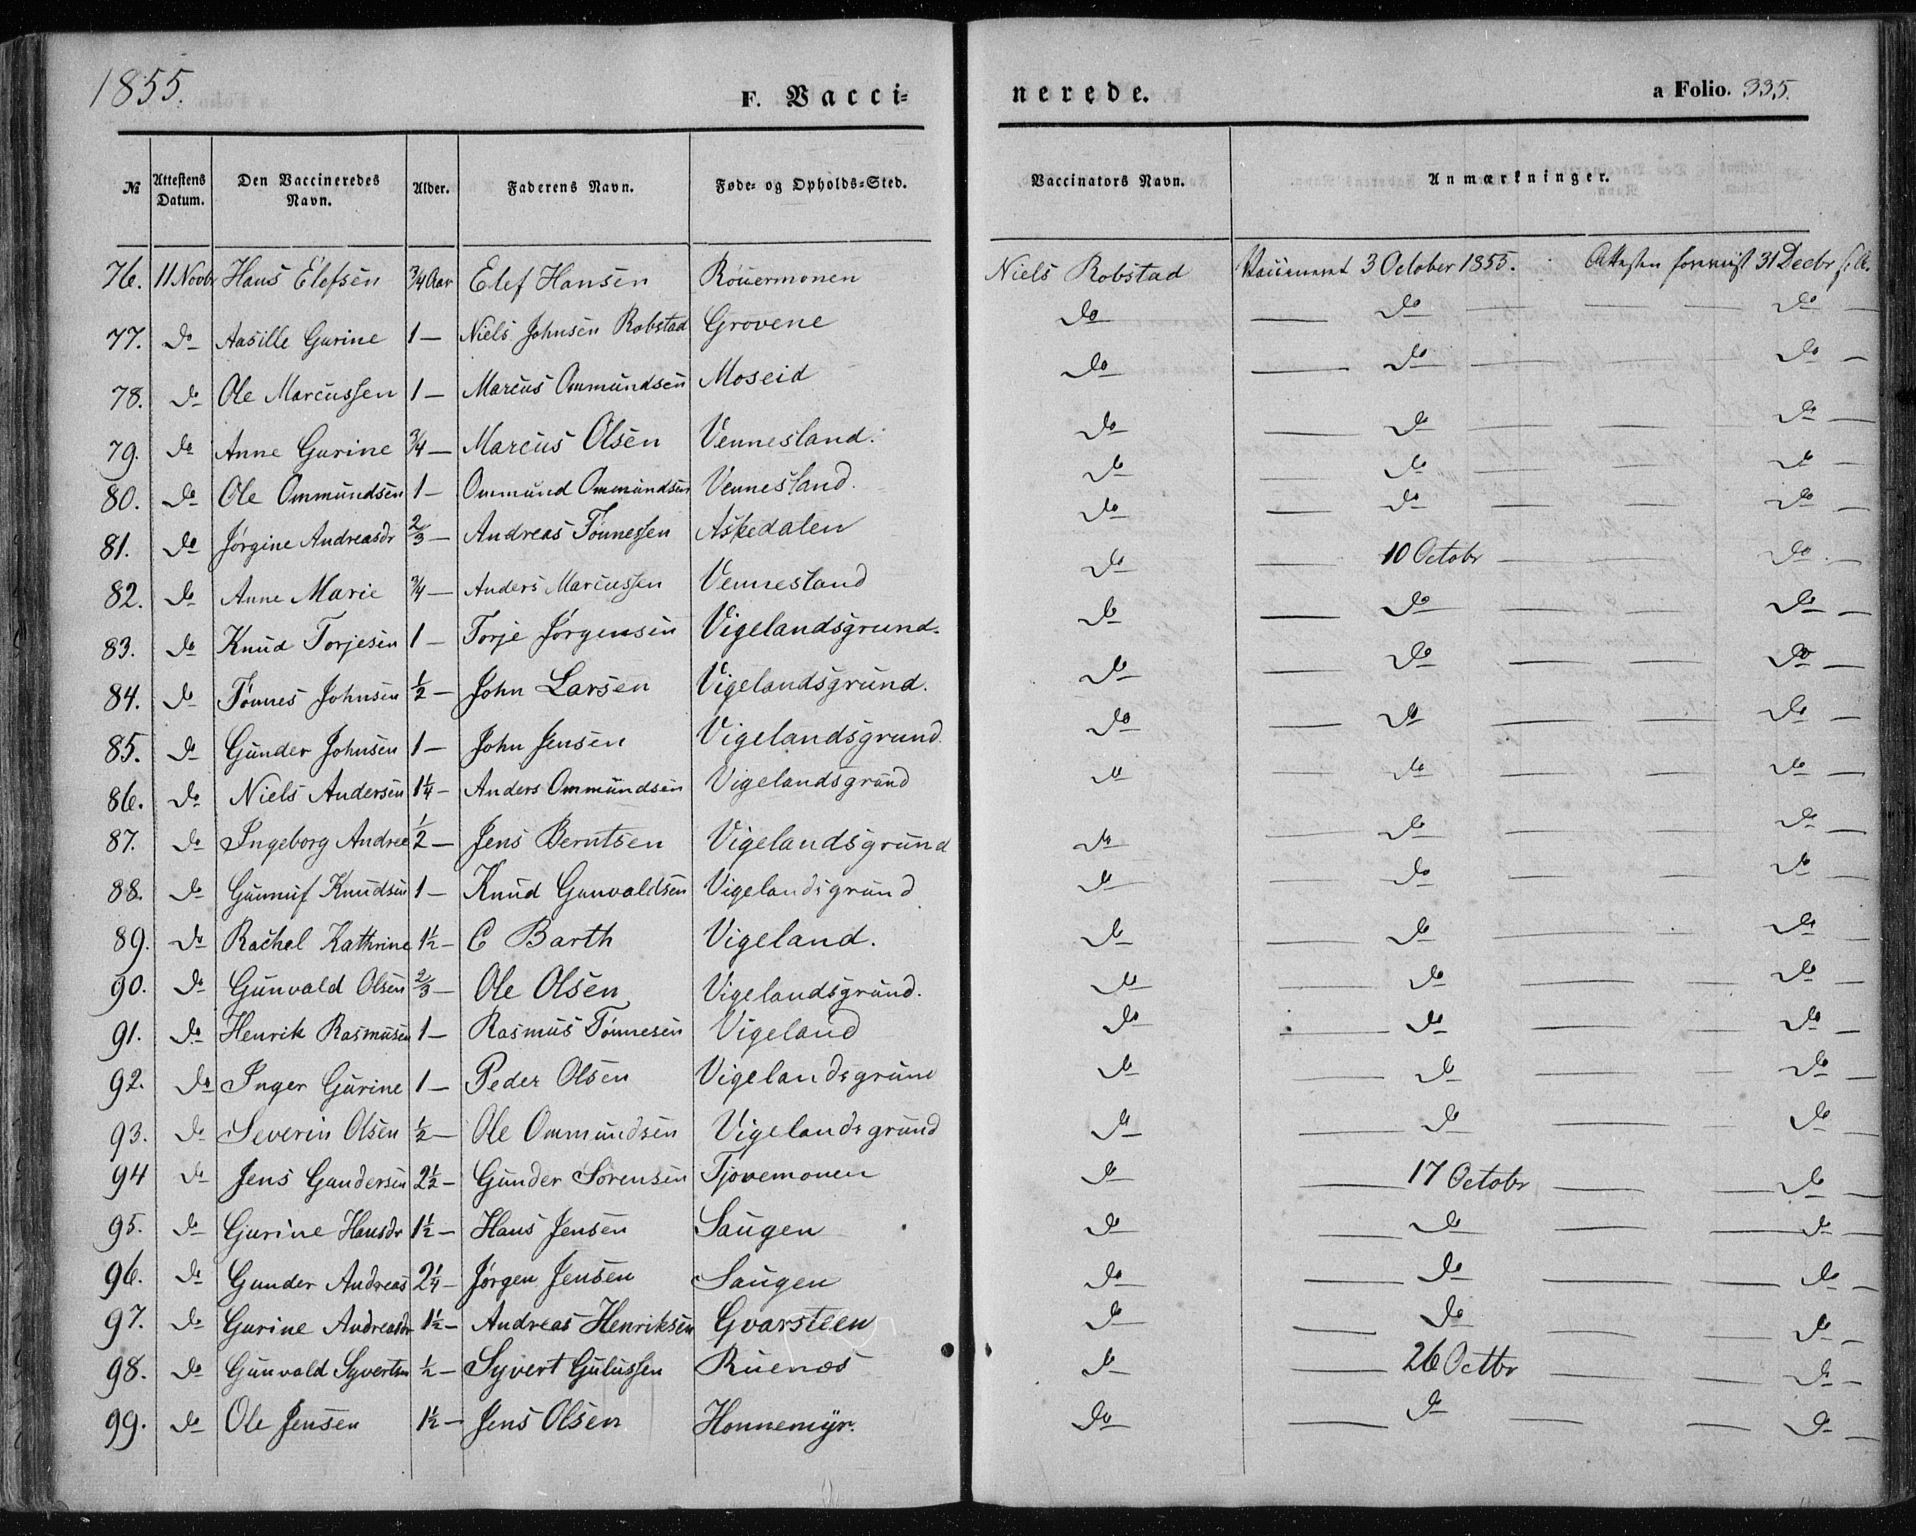 1855.
F. Vacci-
nerede.
a Folio. 335.
№ | Attestens Datum. | Den Vaccineredes Navn. | Alder. | Faderens Navn. | Føde- og Opholds-Sted. | Vaccinators Navn. | Anmærkninger.
76. 11 Novbr Hans Elefsen 3/4 Aar Elef Hansen Röuermonen Niels Robstad 3 October 1855. Attesten 31 Decbr
77. do Aasille Gurine 1 — Niels Johnsen Robstad Grovene do — do — do —
78. do Ole Marcussen 1 — Marcus Ommundsen Moseid do — do — do —
79. do Anne Gurine 3/4 — Marcus Olsen Vennesland. do — do — do —
80. do Ole Ommundsen 1 — Ommund Ommundsen Vennesland. do — do — do —
81. do Jørgine Andreasdr 2/3 — Andreas Tønnessen Askedalen do — do — do —
82. do Anne Marie 3/4 — Anders Marcussen Vennesland do — 10 Octobr — do.
83. do Knud Torjesen 1 — Torje Jørgensen Vigelandsgrund. do — do — do —
84. do Tønnes Johnsen 1/2 — John Larsen Vigelandsgrund. do — do — do —
85. do Gunder Johnsen 1 — John Jensen Vigelandsgrund. do — do — do —
86. do Niels Andersen 1 1/4 — Anders Ommundsen Vigelandsgrund do — do — do —
87. do Ingeborg Andrea 1/2 — Jens Berntsen Vigelandsgrund do — do — do —
88. do Gunnuf Knudsen 1 — Knud Gunvaldsen Vigelandsgrund do — do — do —
89. do Rachel Kathrine 1 1/2 — C Barth Vigeland. do — do — do —
90. do Gunvald Olsen 2/3 — Ole Olsen Vigelandsgrund. do — do — do —
91. do Henrik Rasmusen 1 — Rasmus Tønnesen Vigeland do — do — do —
92. do Inger Gurine 1 — Peder Olsen Vigelandsgrund do — do — do —
93. do Severin Olsen 1/2 — Ole Ommundsen Vigelandsgrund do — do — do —
94 do Jens Gundersen 2 1/2 — Gunder Sørensen Tjovemonen do — 17 Octobr — do —
95. do Gurine Hansdr 1 1/2 — Hans Jensen Saugen do — do — do —
96. do Gunder Andreas 2 1/4 — Jørgen Jensen Saugen do — do — do —
97. do Gurine Andreasdr 1 1/2 — Andreas Henriksen Gvarsteen do — do — do —
98. do Gunvald Syvertsen 1/2 — Syvert Gulussen Ruenæs do — 26 Octbr — do —
99. do Ole Jensen 1 1/2 — Jens Olsen Honnemyr. do — do — do —